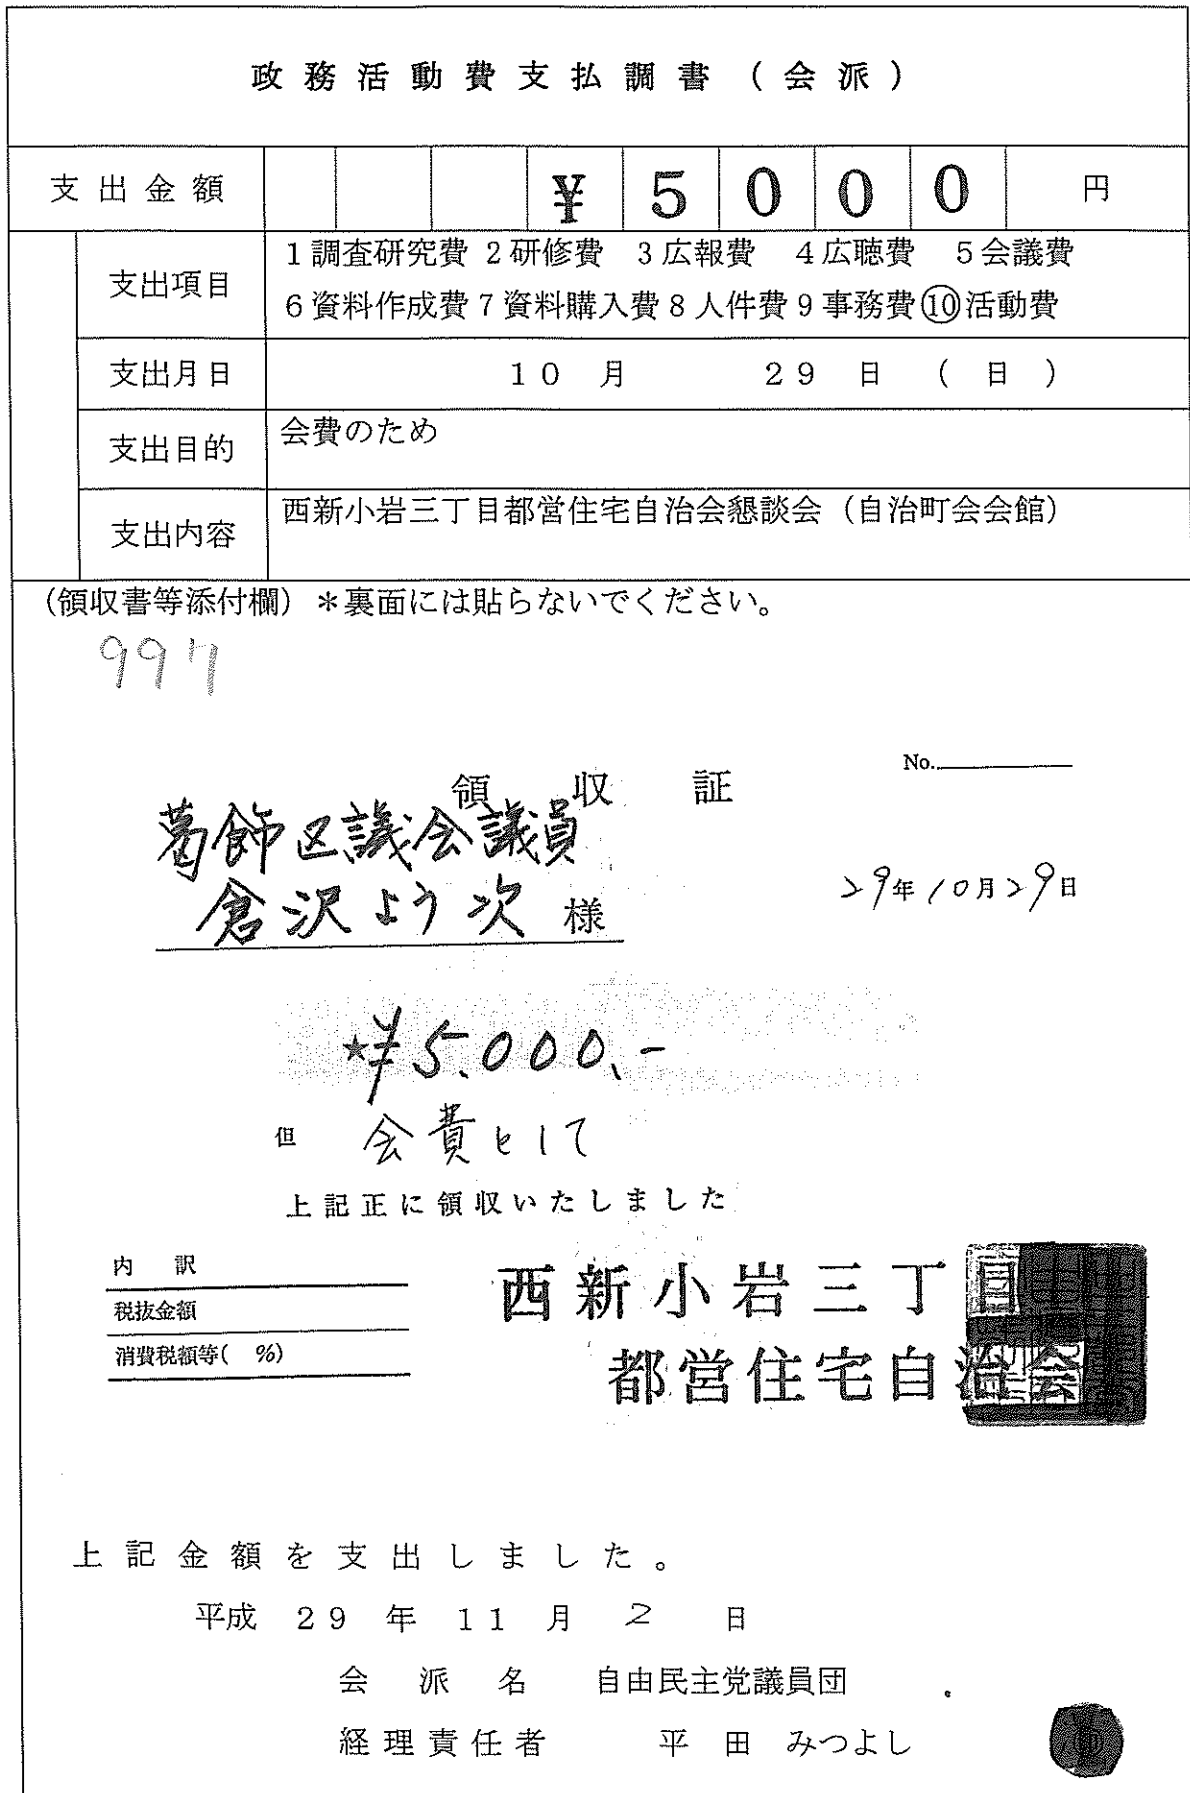 政務活動費支払調書（会派）
支出金額 ￥5000 円
支出項目 1調査研究費 2研修費 3広報費 4広聴費 5会議費
6資料作成費 7資料購入費 8人件費 9事務費 ⑩活動費
支出月日 10月 29日（日）
支出目的 会費のため
支出内容 西新小岩三丁目都営住宅自治会懇談会（自治町会会館）
（領収書等添付欄）＊裏面には貼らないでください。
997
No.
領収証
葛飾区議会議員
倉沢よう次 様
29年10月29日
★¥5,000,-
但 会費として
上記正に領収いたしました
内訳
税抜金額
消費税額等( %)
西新小岩三丁目
都営住宅自治会
上記金額を支出しました。
平成 29年 11月 2日
会派名 自由民主党議員団
経理責任者 平田 みつよし